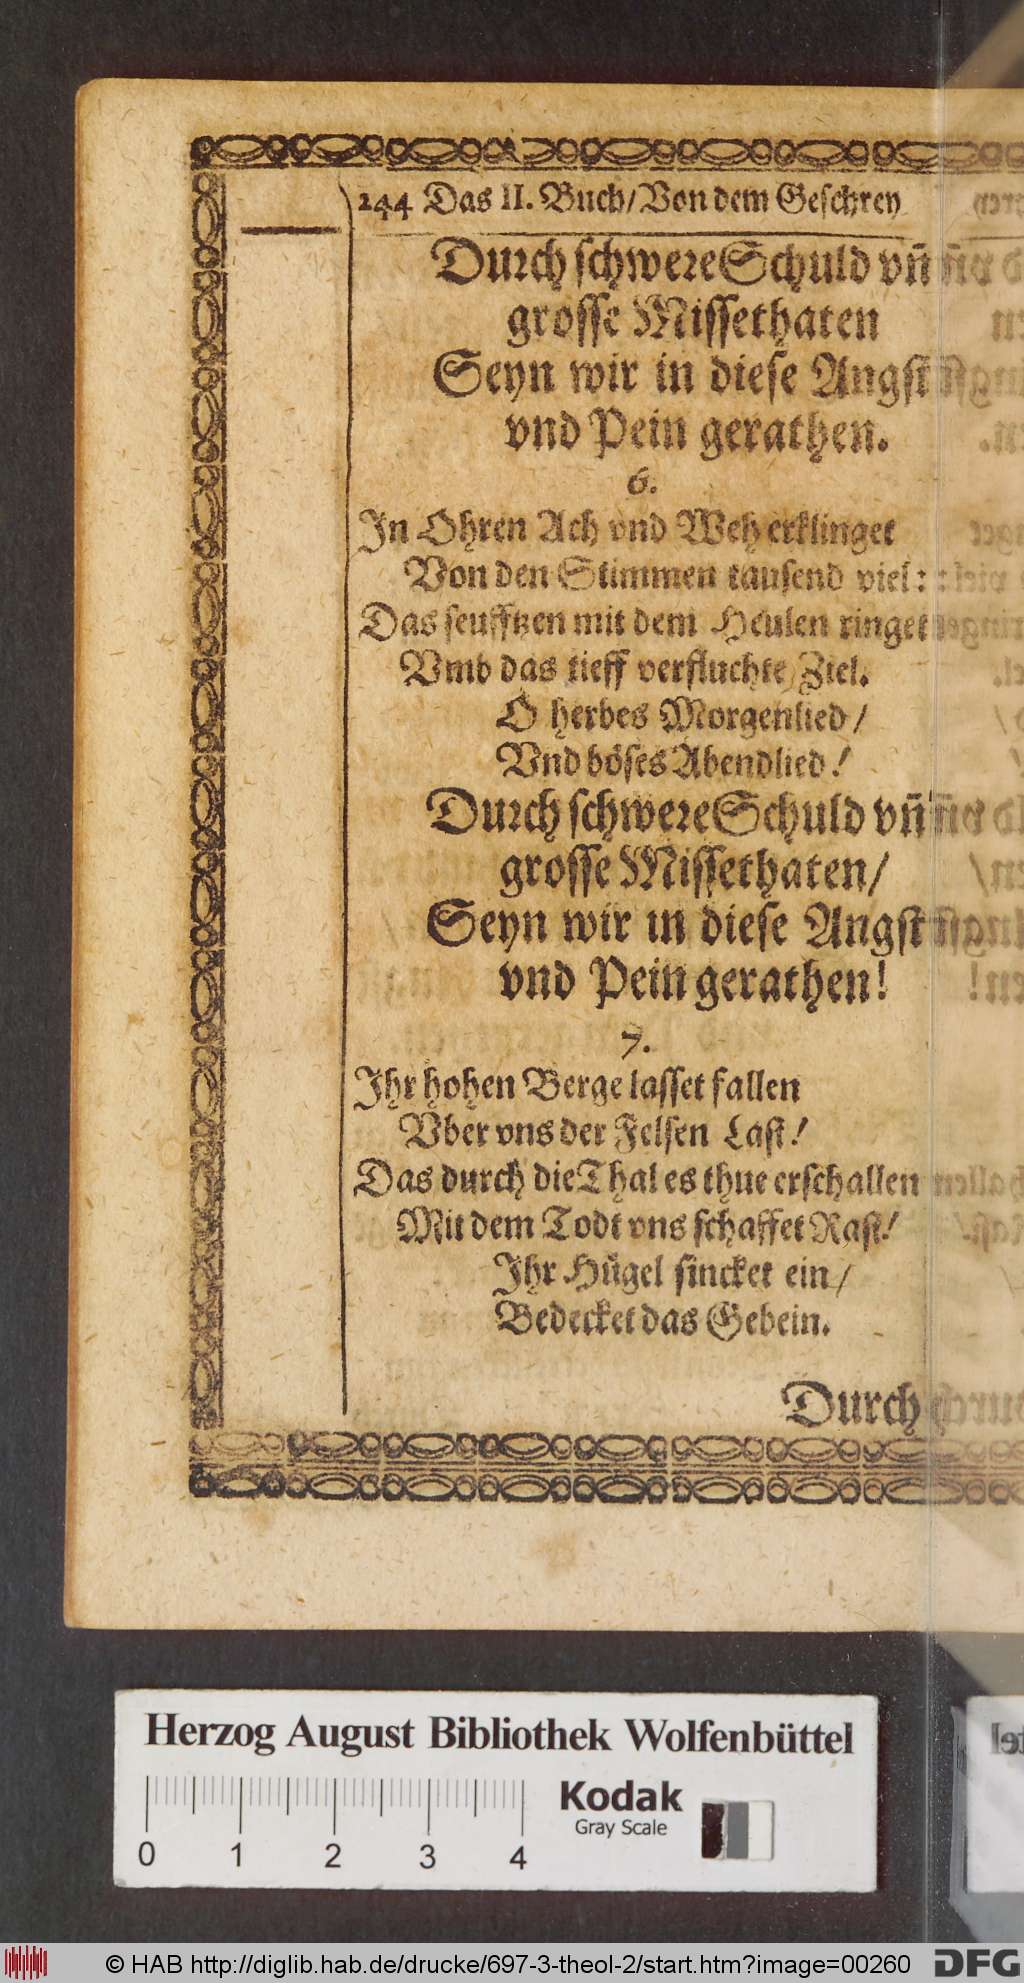 244 Das II. Buch/Von dem Geschrey
Durch schwere Schuld vñ
grosse Missethaten
Seyn wir in diese Angst
vnd Pein gerathen.
6.
In Ohren Ach vnd Weh erklinget
Von den Stimmen tausend viel:
Das seufftzen mit dem Heulen ringet
Vmb das tieff verfluchte Ziel.
O herbes Morgenlied/
Vnd böses Abendlied!
Durch schwere Schuld vñ
grosse Missethaten/
Seyn wir in diese Angst
vnd Pein gerathen!
7.
Ihr hohen Berge lasset fallen
Vber vns der Felsen Last!
Das durch die Thal es thue erschallen
Mit dem Todt vns schaffet Rast!
Ihr Hügel sincket ein/
Bedecket das Gebein.
Durch
Herzog August Bibliothek Wolfenbüttel
Kodak
Gray Scale
0 1 2 3 4
© HAB http://diglib.hab.de/drucke/697-3-theol-2/start.htm?image=00260
DFG